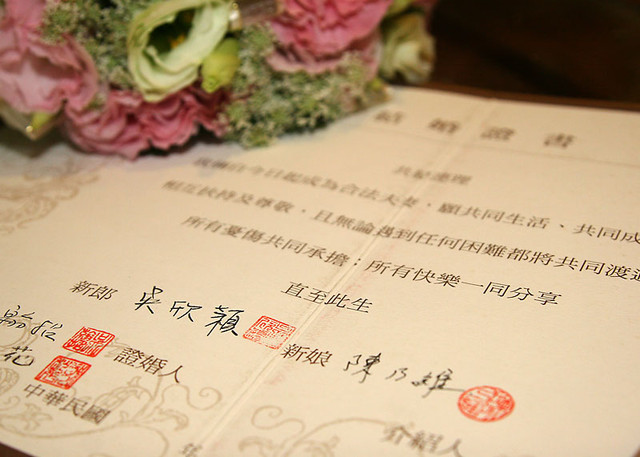 結婚證書
共結連理
我倆自今日起成為合法夫妻，願共同生活、共同成
相互扶持及尊敬，且無論遇到任何困難都將共同渡過
所有憂傷共同承擔；所有快樂一同分享
直至此生
新郎 吳欣穎
新娘 陳乃雄
證婚人
介紹人
中華民國
年